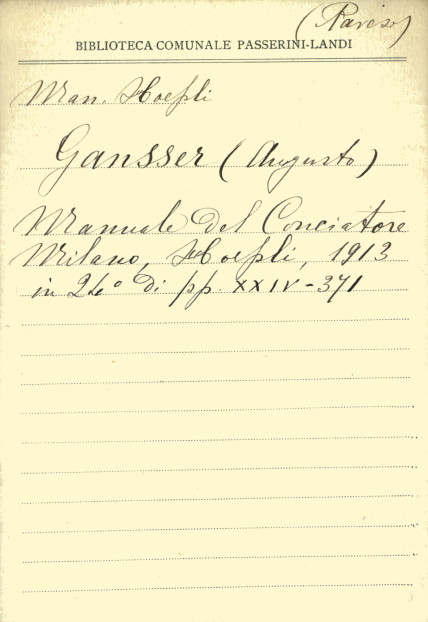 (Pavesi)
BIBLIOTECA COMUNALE PASSERINI-LANDI
Man. Hoepli
Gansser (Augusto)
Manuale del Conciatore
Milano, Hoepli, 1913
in 24° di pp. XXIV-371